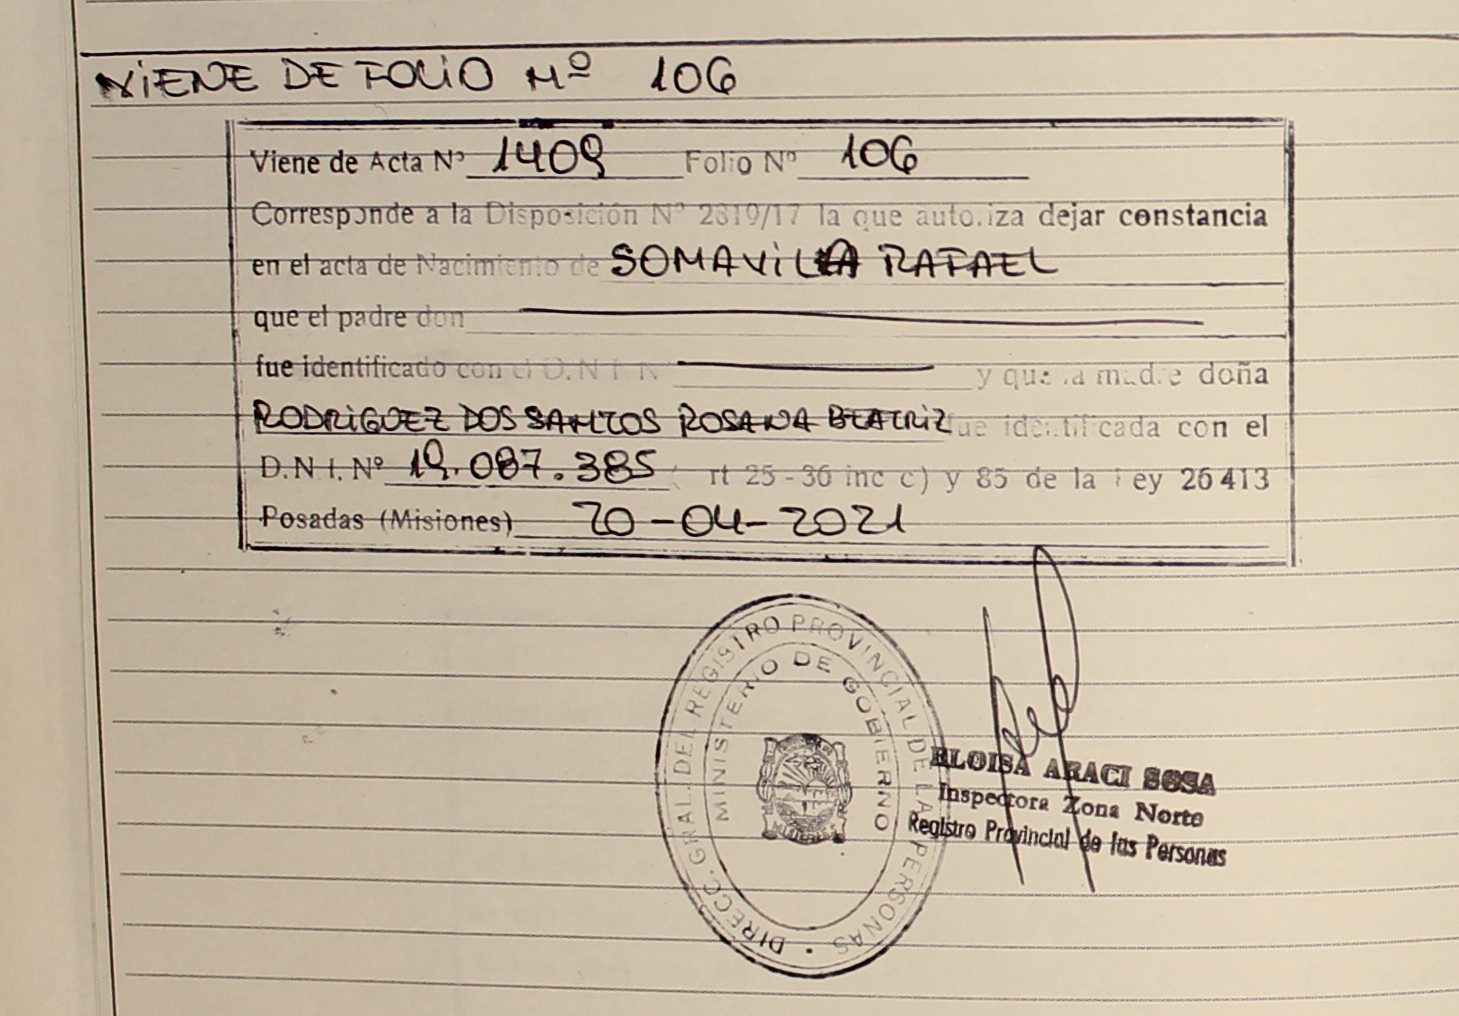 VIENE DE FOLIO Nº 106
Viene de Acta Nº 1409 Folio Nº 106
Corresponde a la Disposición Nº 2819/17 la que autoriza dejar constancia
en el acta de Nacimiento de SOMAVILLA RAFAEL
que el padre don
fue identificado con el D.N.I. Nº y que la madre doña
RODRIGUEZ DOS SANTOS ROSANA BEATRIZ fue identificada con el
D.N.I. Nº 19.087.385 ( rt 25-36 inc c) y 85 de la Ley 26413
Posadas (Misiones) 20-04-2021
DIRECC. GRAL. DEL REGISTRO PROVINCIAL DE LAS PERSONAS
MINISTERIO DE GOBIERNO
ELOISA ARACI SOSA
Inspectora Zona Norte
Registro Provincial de las Personas